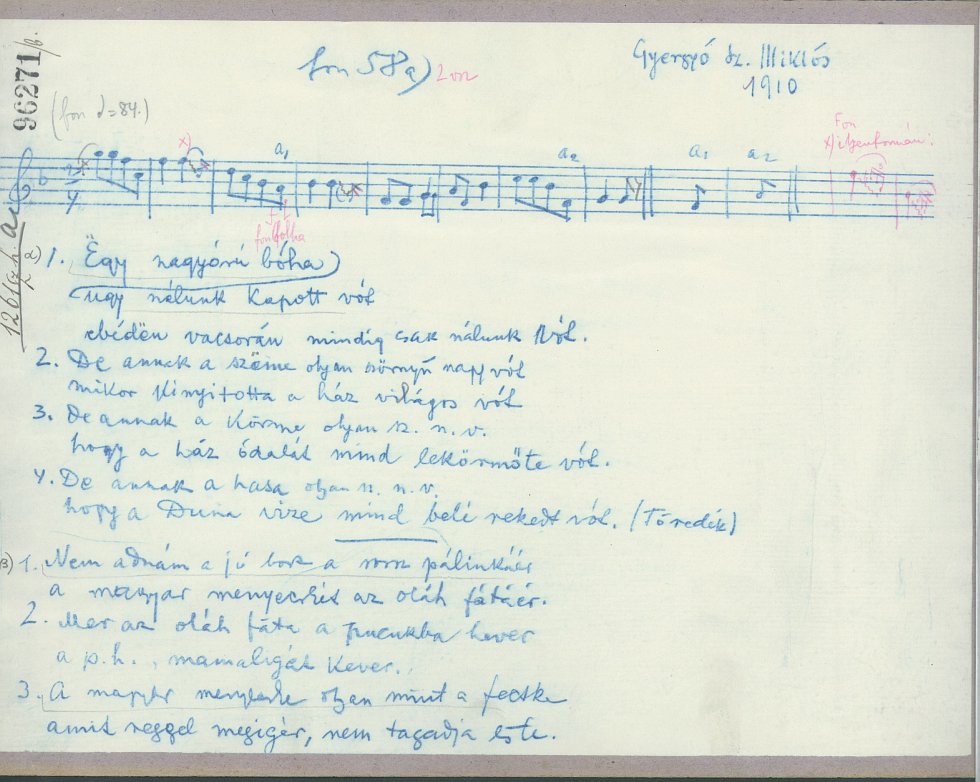 96271/b.
fon 58a) 2 vsz
Gyergyó sz. Miklós
1910
(fon = 84.)
Fon
x)
x)
a1
a2
a1
a2
a)
1. Ëgy nagyórú bóha
ugy nálunk kapott vót
ebédën vacsorán mindig csak nálunk vót.
2. De annak a szëme olyan szörnyű nagy vót
mikor kinyitotta a ház világos vót
3. De annak a körme olyan sz. n. v.
hogy a ház ódalát mind lekörmöte vót.
4. De annak a hasa olyan sz. n. v.
hogy a Duna vize mind belé rekedt vót. (Töredék)
B) 1. Nem adnám a jó bort a rossz pálinkáér
a magyar menyecskét az oláh fátáér.
2. Mer az oláh fáta a hever
a p.h., mamaligát kever.
3. A magyar menyecske olyan mint a fecske
amit reggel megigér, nem tagadja este.